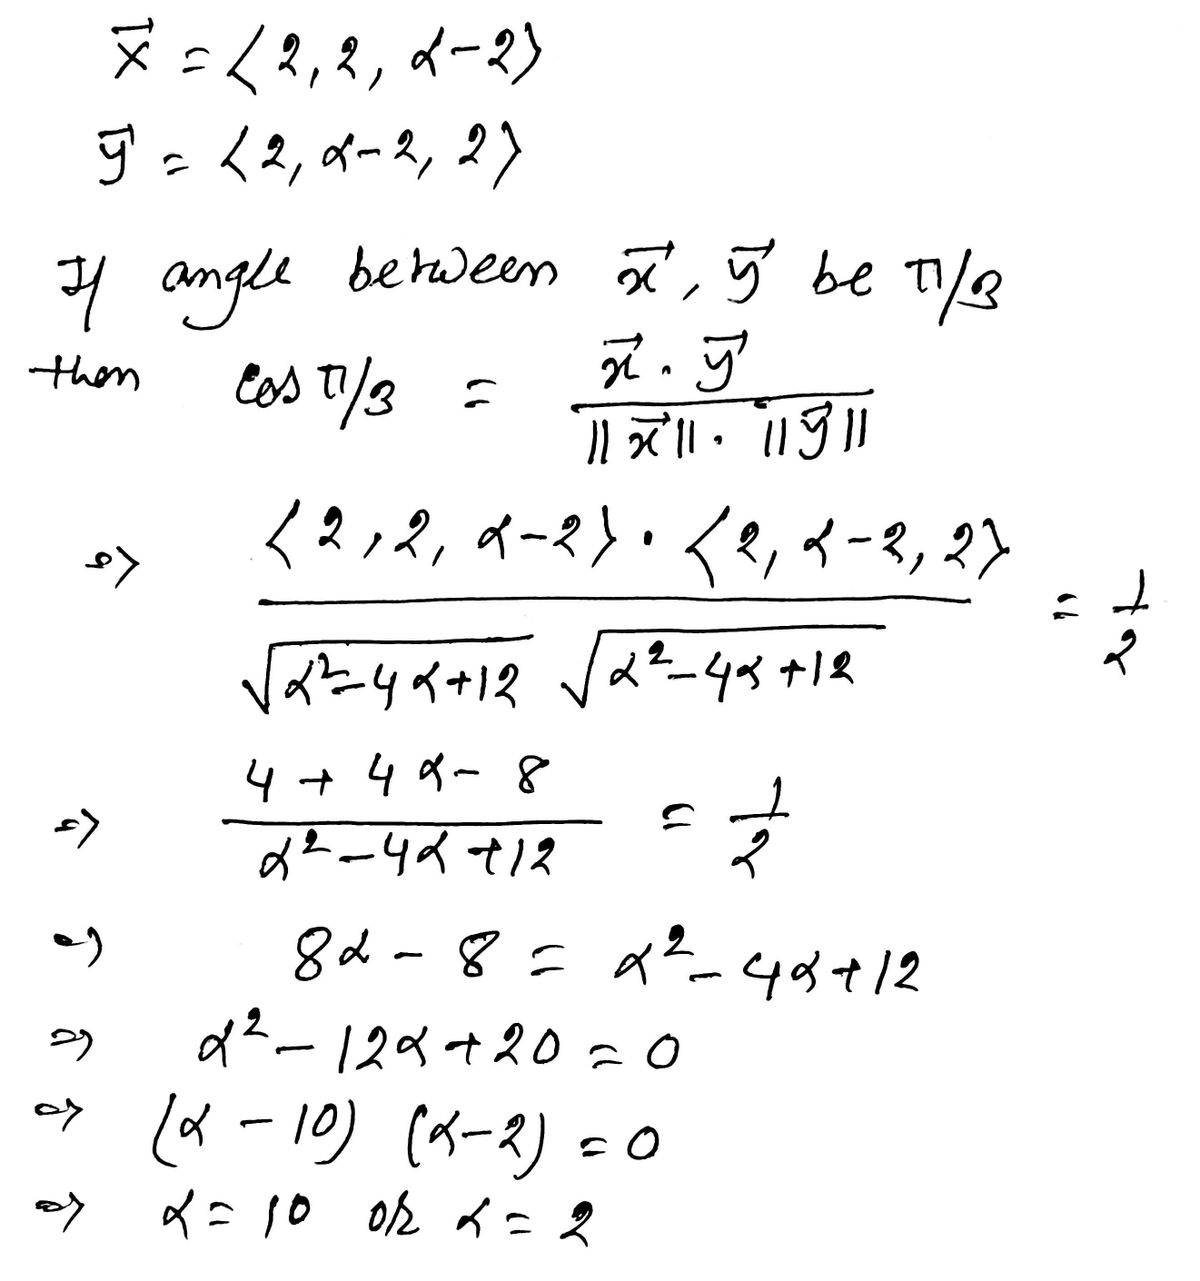 x⃗ = ⟨2, 2, α-2⟩
y⃗ = ⟨2, α-2, 2⟩
If angle between x⃗, y⃗ be π/3
then cos π/3 = (x⃗ . y⃗) / (||x⃗|| . ||y⃗||)
⇒ (⟨2, 2, α-2⟩ · ⟨2, α-2, 2⟩) / (√(α²-4α+12) √(α²-4α+12)) = 1/2
⇒ (4 + 4α - 8) / (α² - 4α + 12) = 1/2
⇒ 8α - 8 = α² - 4α + 12
⇒ α² - 12α + 20 = 0
⇒ (α - 10) (α - 2) = 0
⇒ α = 10 or α = 2